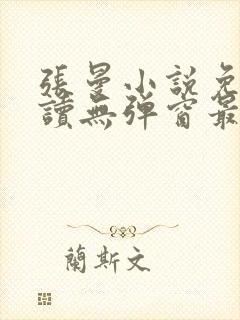 張曼小說免
讀無彈窗最
蘭斯文